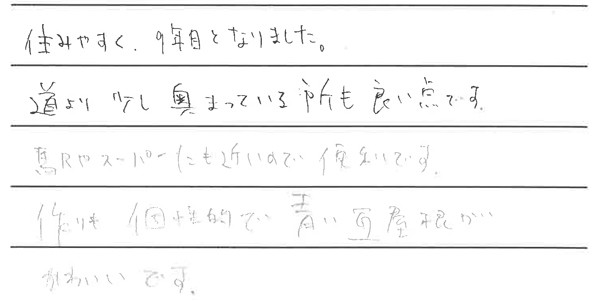 住みやすく、9年目となりました。
道より少し奥まっている所も良い点です。
駅やスーパーにも近いので便利です。
作りも個性的で青い瓦屋根が
かわいいです。